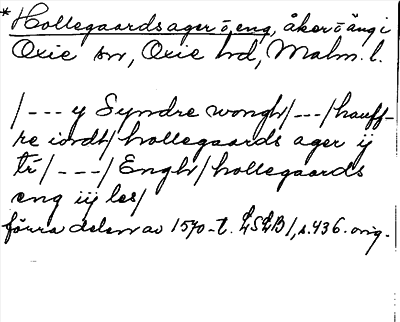 * Hollegaards ager o eng, åker o äng i
Oxie sn, Oxie hd, Malm. l.
/--- y Syndre wongh/---/hauff-
re iordt/hollegaards ager ij
tr/---/Engh/hollegaards
eng iij les/
förra delen av 1570-t. LSLB 1, s. 436. orig.